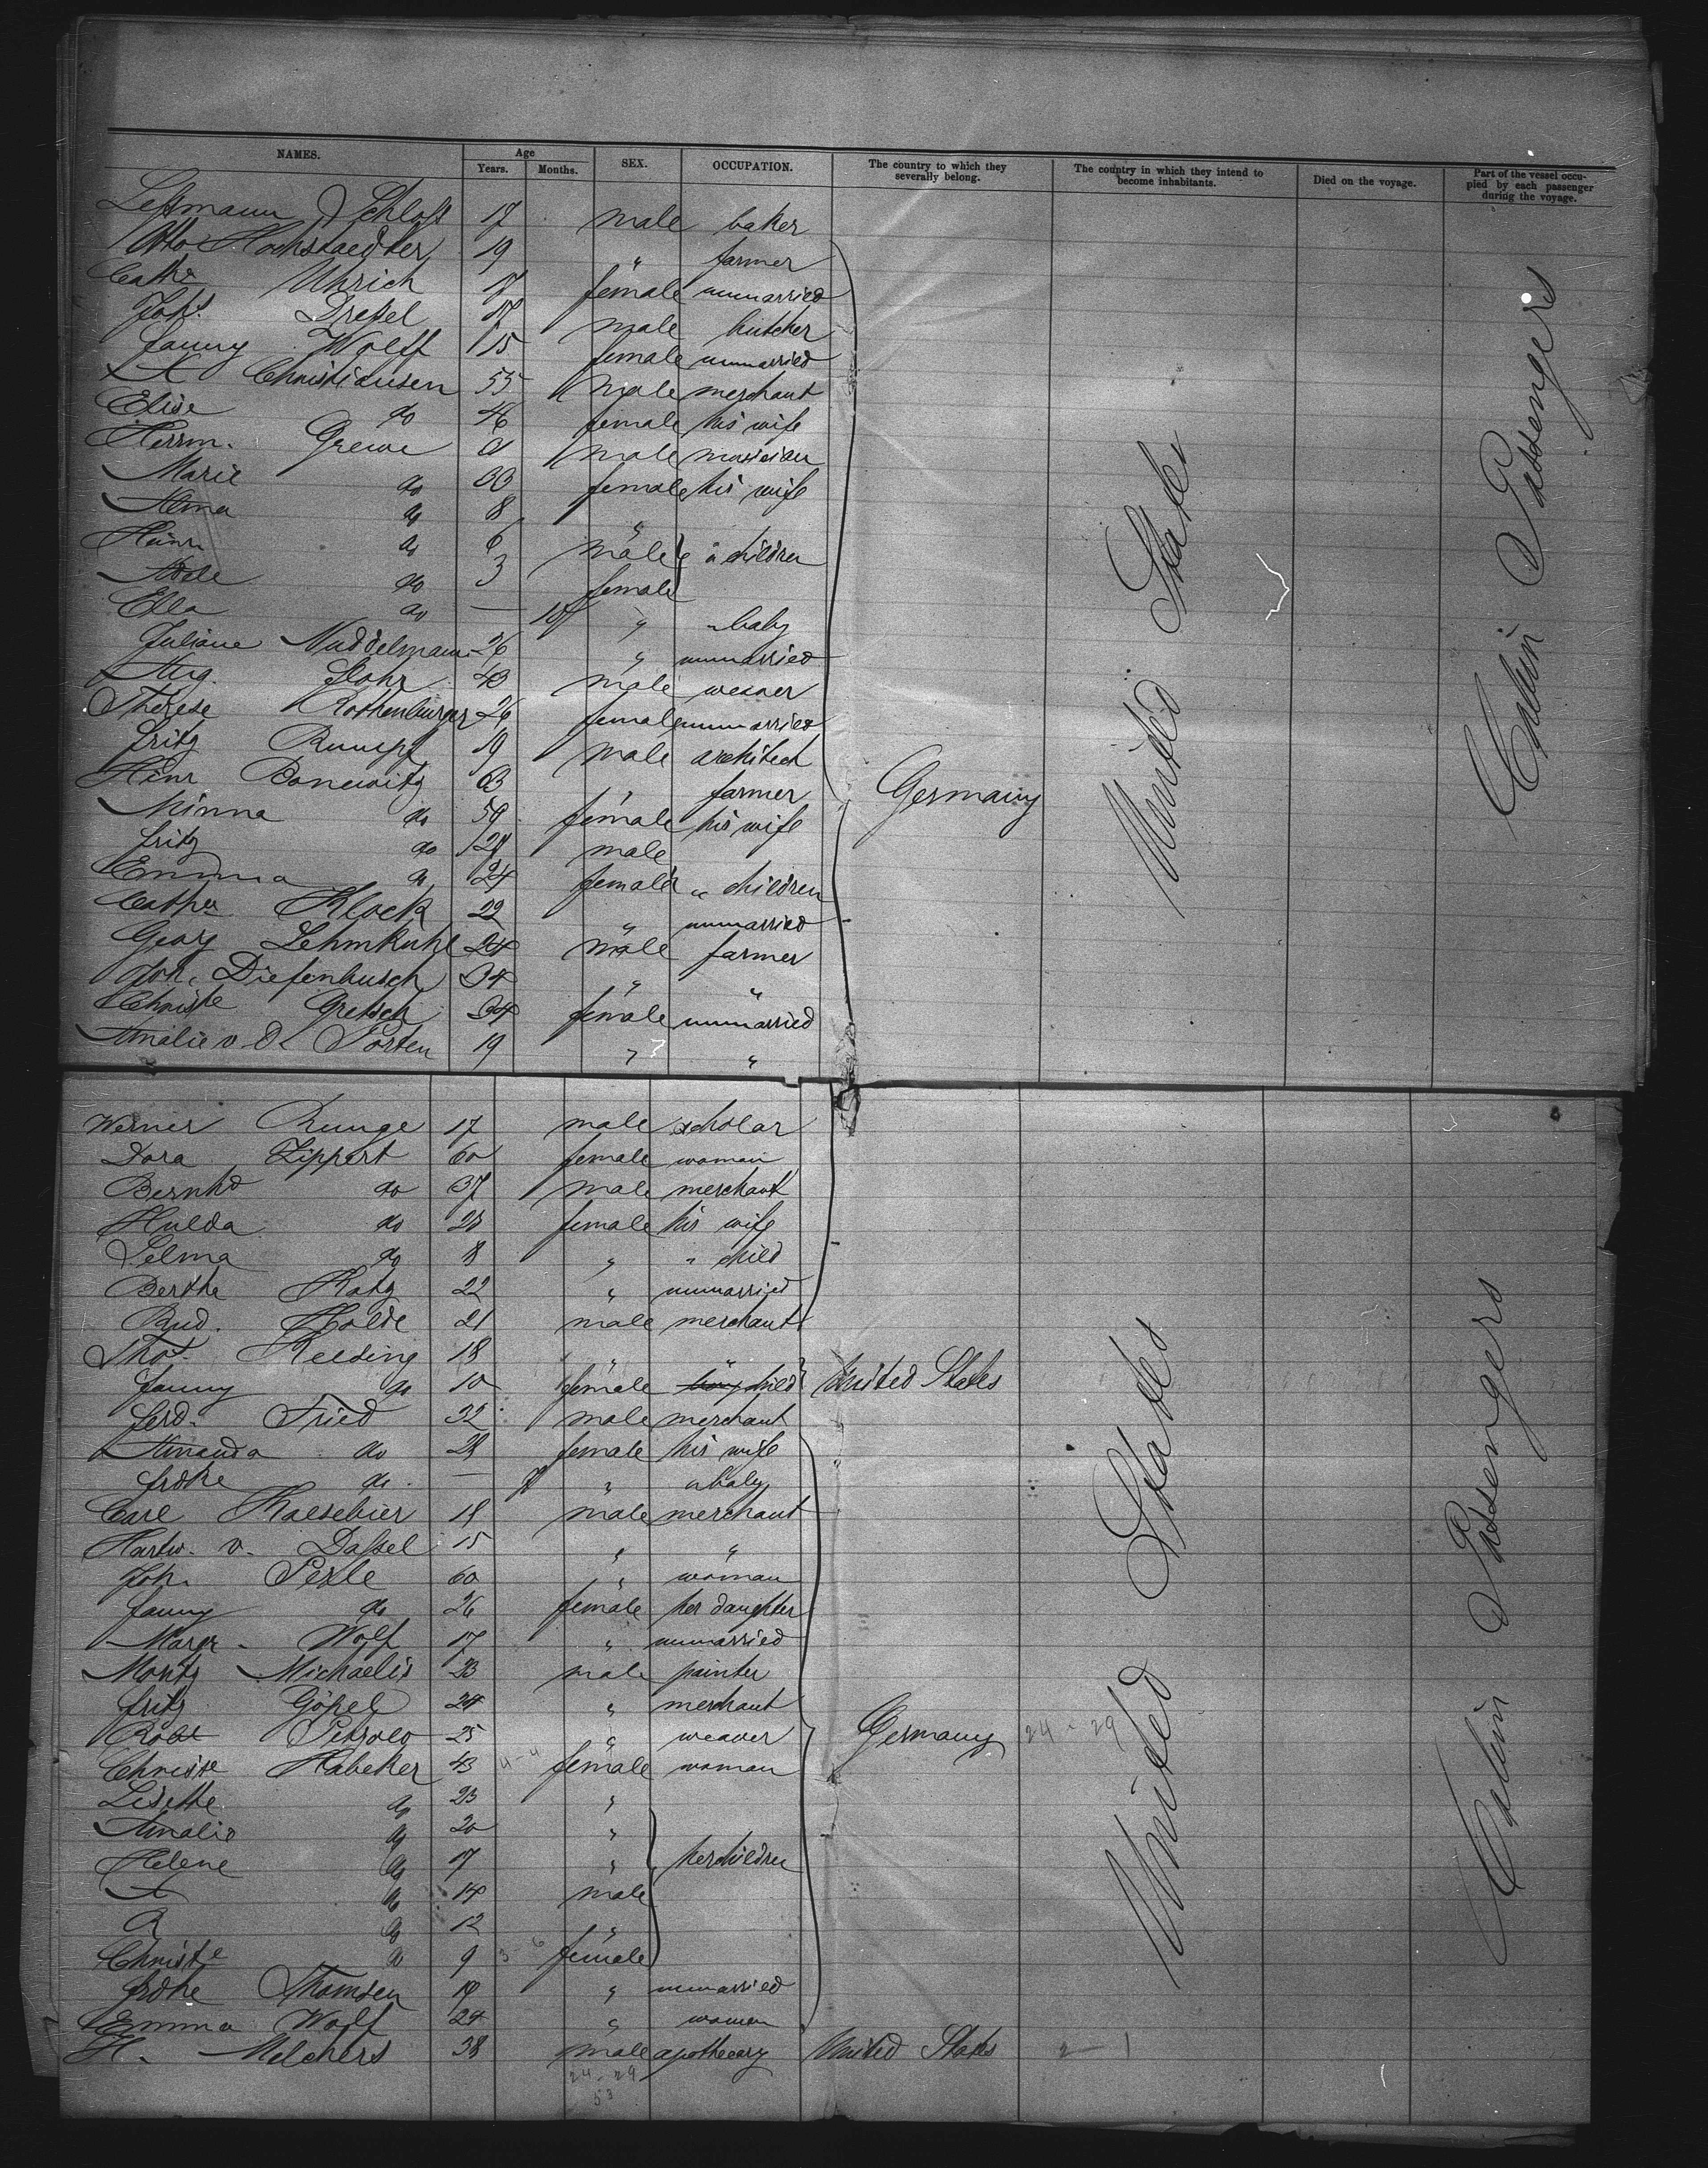 NAMES. Age Years. Months. SEX. OCCUPATION. The country to which they severally belong. The country in which they intend to become inhabitants. Died on the voyage. Part of the vessel occupied by each passenger during the voyage.
Schloß 17 male baker
Otto Hochstaedter 19 " farmer
Cathe Uhrich 17 female unmarried
Johs Dreßel 17 male butcher
Fanny Wolff 15 female unmarried
A Christiansen 55 male merchant
Elise do 46 female his wife
Herrm. Grewe male musician
Marie do 33 female his wife
Alma do 8 "
Heinr. do 6 male " children
Adele do 3 female
Ella do — " " baby
Juliane Nuddelmann 26 " unmarried
Aug. Stohr 43 male weaver
Therese Rothenburger 26 female unmarried
Fritz Rumpf 19 male architect
Heinr Bonewitz 63 " farmer
Germany
United States
Cabin Passengers
Minna do 59 female his wife
Fritz do 29 male
Emma do 24 female " children
Cathr Klock 22 " unmarried
Georg Lehmkuhl 24 male farmer
Joh. Diefenbusch 34 " "
Christe Gretsch 34 female unmarried
Amalie v. d. Porten 19 " "
Werner Runge 17 male scholar
Dora Lippert 60 female woman
Bernhd do 37 male merchant
Hulda do 28 female his wife
Selma do 8 " " child
Berthe Katz 22 " unmarried
Rud. Holde 21 male merchant
Thos. Reeding 18 " "
Fanny do 10 female child United States
Ferd. Fried 32 male merchant
Amanda do 28 female his wife
Frdke do — " " baby
Carl Kaesebier 18 male merchant
Hartw. v. Daßel 15 " "
Joh. Perle 60 " woman
Fanny do 26 female her daughter
Margr. Wolf 17 " unmarried
Moritz Michaelis 23 male painter
Fritz Göpel 24 " merchant
Robt 25 " weaver Germany 24-29
United States
Cabin Passengers
Christe Habeker 43 4-4 female woman
Lisette do 23 "
Amalie do 20 "
Helene do 17 " her children
A do 14 male
R do 12 "
Christe do 9 3-6 female
Frdke Thomsen 19 " unmarried
Emma Wolf 24 " woman
H. Melchers 38 male apothecary United States 2-1
24-29
53